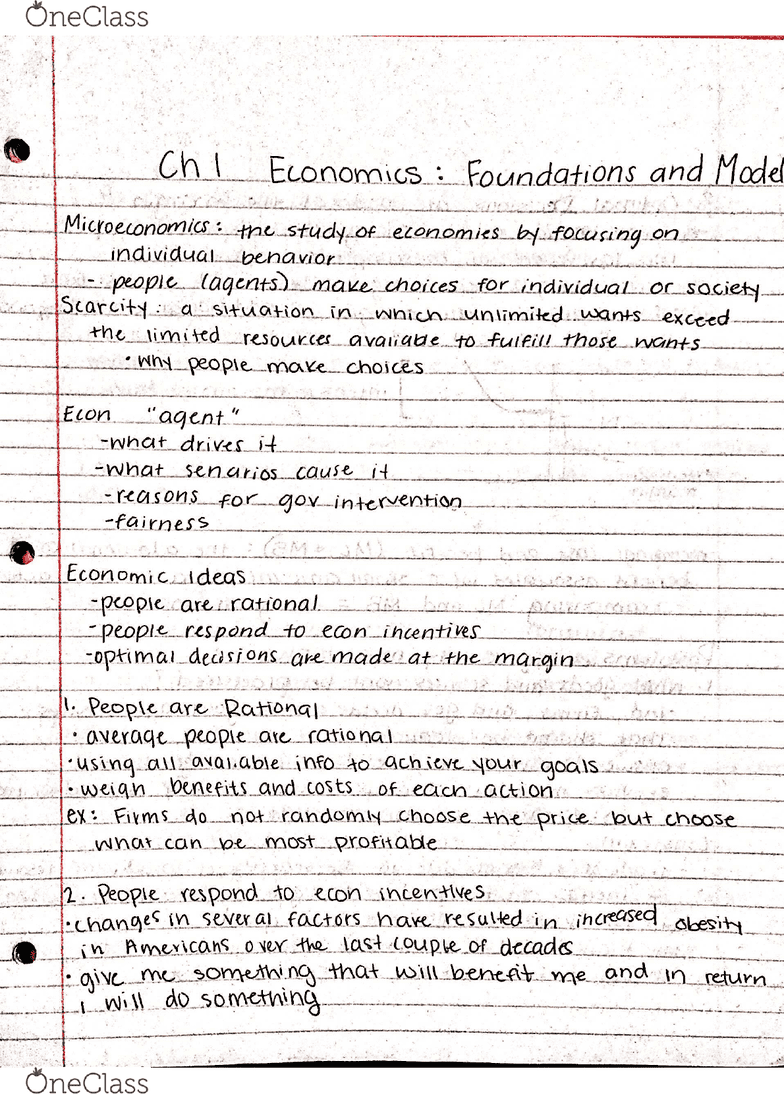 OneClass
Ch 1 Economics: Foundations and Model
Microeconomics: the study of economies by focusing on
individual behavior
- people (agents) make choices for individual or society
Scarcity: a situation in which unlimited wants exceed
the limited resources available to fulfill those wants
• why people make choices
Econ "agent"
-what drives it
-what senarios cause it
-reasons for gov intervention
-fairness
Economic Ideas
-people are rational
-people respond to econ incentives
-optimal decisions are made at the margin
1. People are Rational
• average people are rational
•using all available info to achieve your goals
• weigh benefits and costs of each action
ex: Firms do not randomly choose the price but choose
what can be most profitable
2. People respond to econ incentives
•changes in several factors have resulted in increased obesity
in Americans over the last couple of decades
• give me something that will benefit me and in return
I will do something
OneClass